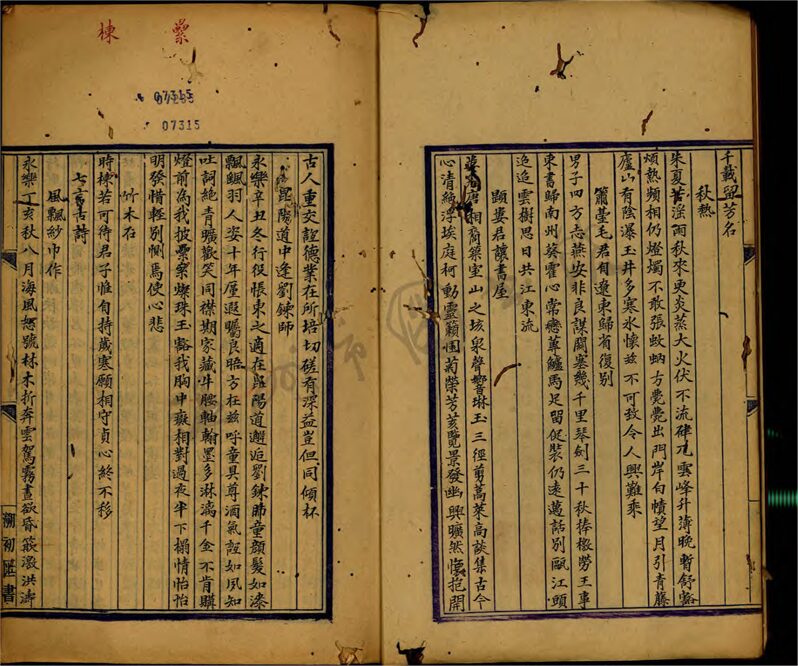 千載留芳名
秋熱
朱夏苦滛雨秋來更炎蒸大火伏不流硉兀雲峰升薄晩暫舒豁
煩熱頻相仍燈燭不敢張蚊蚋方薨薨出門岸白幘望月引青藤
廬山有陰瀑玉井多寒氷懷兹不可致令人興難乘
簫臺毛君有遼東歸省復别
男子四方志燕安非良謀關塞幾千里琴劍三十秋捧檄勞王事
束書歸南州葵霍心常戀蓴鱸馬足留促裝仍遠邁話别甌江頭
迢迢雲樹思日共江東流
題婁君讓書屋
婁唐相裔築室山之垓泉聲響琳玉三徑剪蒿萊高談集古今
心清絶浮埃庭柯動靈籟園菊榮芳荄覽景發幽興曠然懷抱開
古人重交誼德業在所培切磋有深益豈但同傾杯
昆陽道中逢劉鍊師
永樂辛丑冬行役帳東之適在昆陽道邂逅劉鍊師童顔髮如漆
飄飄羽人姿十年屢遐矚良晤方在兹呼童具尊酒氣誼如夙知
吐詞絶青曠歡笑同襟期家藏牛腰軸翰墨多淋漓千金不肯購
燈前為我披纍纍燦珠玉豁我胸中癡相對過夜半下榻情怡怡
明發惜輕别惻焉使心悲
竹木石
時棟若可待君子惟自持歲寒願相守貞心終不移
七言古詩
風飄紗巾作
永樂丁亥秋八月海風怒號林木折奔雲駕霧晝欲昏簸激洪濤
纍
棟
07315
07315